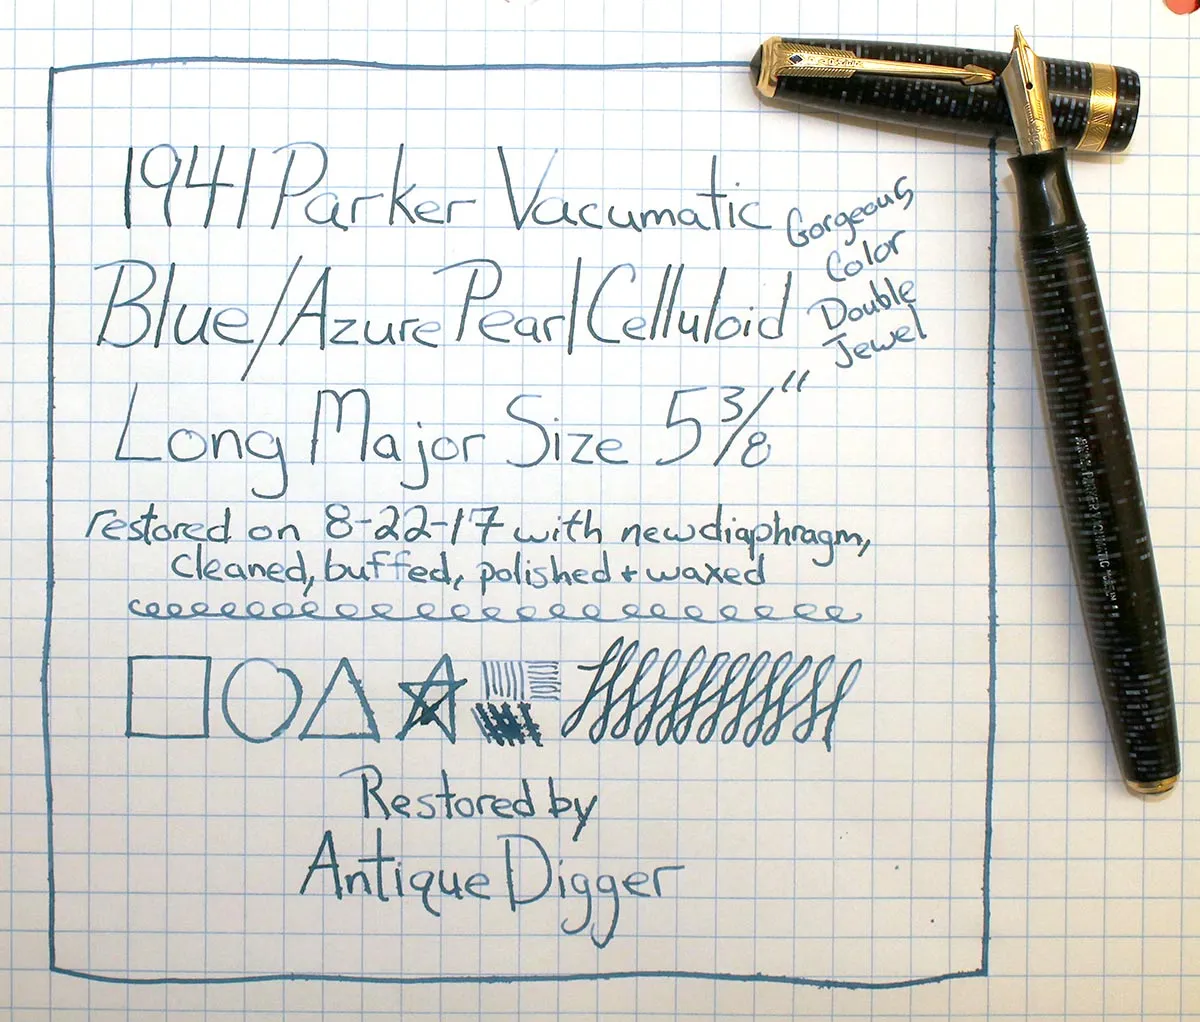 1941 Parker Vacumatic
Gorgeous
Color
Double
Jewel
Blue/Azure Pearl Celluloid
Long Major Size 5 3/8"
restored on 8-22-17 with new diaphragm,
cleaned, buffed, polished + waxed
Restored by
Antique Digger